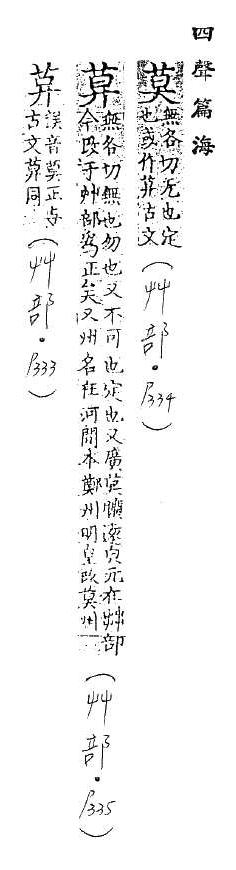 四聲篇海
莫無各切无也定
也或作茻古文
(艸部·P334)
茻無各切無也勿也又不可也定也又廣莫曠遠皃元在茻部
今改于艸部爲正矣又州名在河間本鄭州明皇改莫州
(艸部·P335)
茻音莫正与
古文茻同
(艸部·P333)